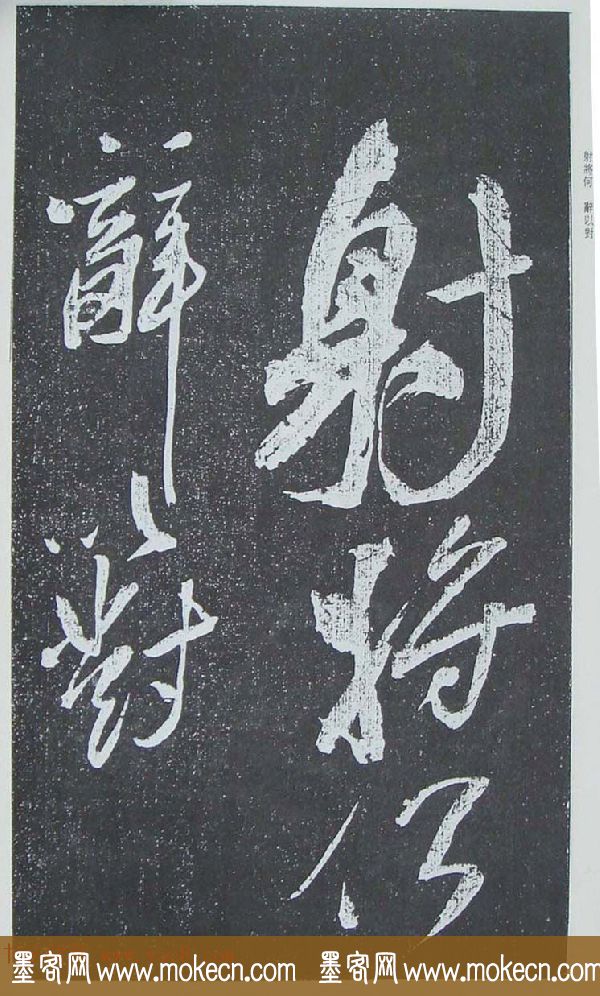 射將何
辭以對
射將何 辭以對
墨客网 www.mokecn.com 墨客网 www.mokecn.com